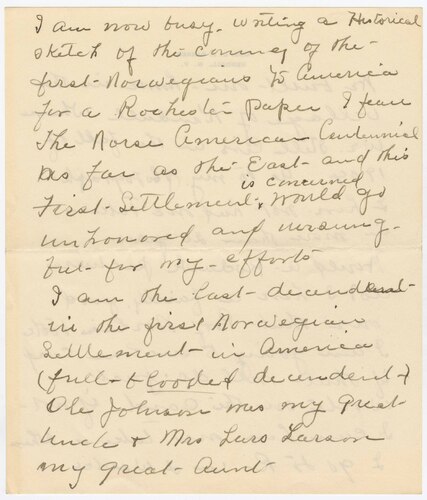 I am now busy. writing a Historical
sketch of the coming of the
first Norwegians to America
for a Rochester paper I fear
The Norse American Centennial
as far as the East and this
is concerned
First Settlement, would go
unhonored and unsung
but for my efforts
I am the last decendent
in the first Norwegian
Settlement in America
(full blooded decendent)
Ole Johnson was my great
Uncle & Mrs Lars Larson
my great Aunt